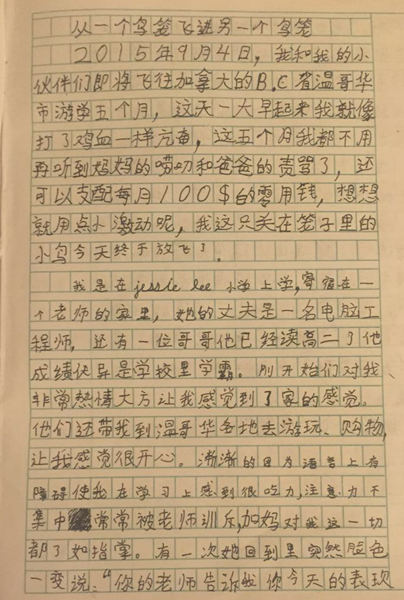 从一个鸟笼飞进另一个鸟笼
2015年9月4日，我和我的小
伙伴们即将飞往加拿大的B.C省温哥华
市游学五个月，这天一大早起来我就像
打了鸡血一样亢奋，这五个月我都不用
再听到妈妈的唠叨和爸爸的责骂了，还
可以支配每月100$的零用钱，想想
就用点小激动呢，我这只关在笼子里的
小鸟今天终于放飞了．
我是在jessie lee小学上学，寄宿在一
个老师的家里，她的丈夫是一名电脑工
程师，还有一位哥哥他已经读高二了他
成绩优异是学校里学霸。刚开始们对我
非常热情大方让我感觉到了家的感觉。
他们还带我到温哥华各地去游玩、购物，
让我感觉很开心。渐渐的因为语言上有
障碍使我在学习上感到很吃力，注意力不
集中常常被老师训斥，加妈对我这一切
都了如指掌。有一次她回到里突然脸色
一变说：“你的老师告诉我你今天的表现